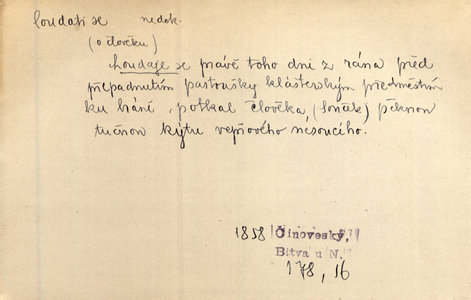 loudati se nedok.
(o člověku)
Loudaje se právě toho dní z rána před
přepadnutím pastoušky klášterským předměstím
ku bráně, potkal člověka, pěknou
tučnou kýtu vepřového nesoucího.
1858 Činoveský,
Bitva u N.
178, 16